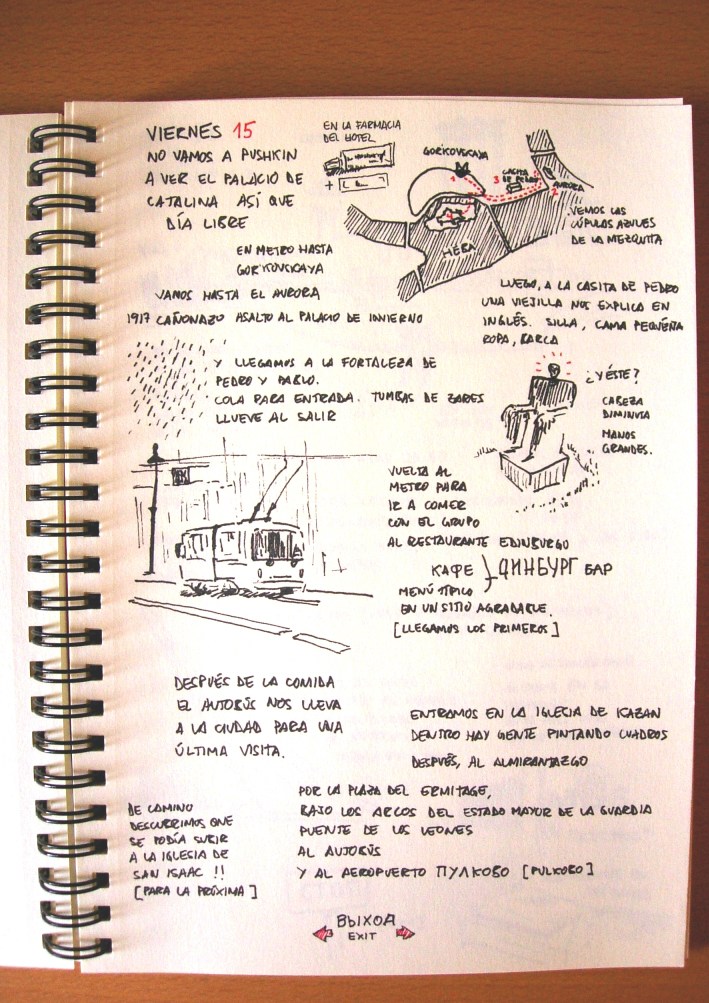 VIERNES 15
NO VAMOS A PUSHKIN
A VER EL PALACIO DE
CATALINA ASÍ QUE
DÍA LIBRE
EN LA FARMACIA
DEL HOTEL
+
GORKOVSKAYA
1
3
CASITA
DE PEDRO
AURORA
2
4
НЕВА
VEMOS LAS
CÚPULAS AZULES
DE LA MEZQUITA
EN METRO HASTA
GORKOVSKAYA
VAMOS HASTA EL AURORA
1917 CAÑONAZO ASALTO AL PALACIO DE INVIERNO
LUEGO, A LA CASITA DE PEDRO
UNA VIEJILLA NOS EXPLICA EN
INGLÉS. SILLA, CAMA PEQUEÑA
ROPA, BARCA
Y LLEGAMOS A LA FORTALEZA DE
PEDRO Y PABLO.
COLA PARA ENTRADA. TUMBAS DE ZARES
LLUEVE AL SALIR
¿Y ÉSTE?
CABEZA
DIMINUTA
MANOS
GRANDES.
VUELTA AL
METRO PARA
IR A COMER
CON EL GRUPO
AL RESTAURANTE EDINBURGO
КАФЕ ДИНБУРГ БАР
MENÚ TÍPICO
EN UN SITIO AGRADABLE.
[LLEGAMOS LOS PRIMEROS]
DESPUÉS DE LA COMIDA
EL AUTOBÚS NOS LLEVA
A LA CIUDAD PARA UNA
ÚLTIMA VISITA.
ENTRAMOS EN LA IGLESIA DE KAZAN
DENTRO HAY GENTE PINTANDO CUADROS
DESPUÉS, AL ALMIRANTAZGO
POR LA PLAZA DEL ERMITAGE,
BAJO LOS ARCOS DEL ESTADO MAYOR DE LA GUARDIA
PUENTE DE LOS LEONES
AL AUTOBÚS
Y AL AEROPUERTO ПУЛКОВО [PULKOBO]
DE CAMINO
DESCUBRIMOS QUE
SE PODÍA SUBIR
A LA IGLESIA DE
SAN ISAAC !!
[PARA LA PRÓXIMA]
ВЫХОД
EXIT